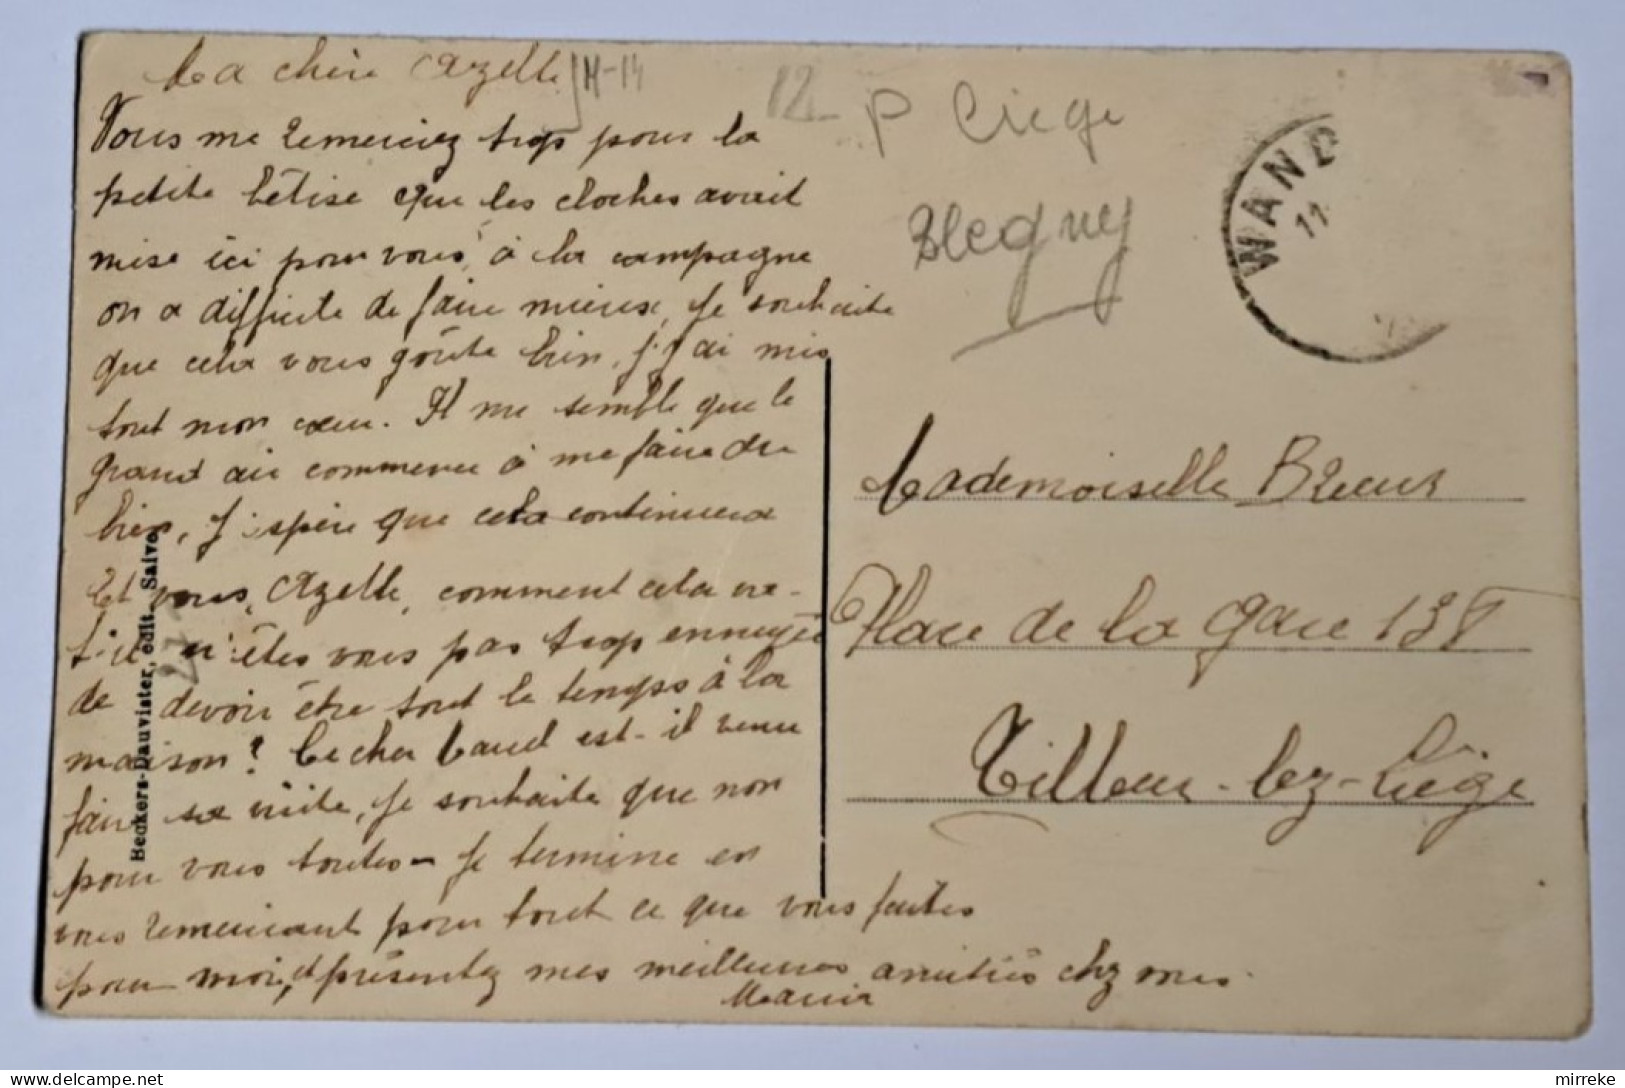 Ma chère Azelle
Vous me remerciez trop pour la
petite bêtise que les cloches avait
mise ici pour vous, à la campagne
on a difficile de faire mieux, je souhaite
que cela vous goûte bien, j'y ai mis
tout mon cœur. Il me semble que le
grand air commence à me faire du
bien, j'espère que cela continuera
Et vous, Azelle, comment cela va-
t-il n'êtes vous pas trop ennuyée
de devoir être tout le temps à la
maison? Le cher est-il venu
faire sa visite, je souhaite que non
pour vous toutes - Je termine en
vous remerciant pour tout ce que vous faites
pour moi, et présentez mes meilleures amitiés chez vous.
Maria
Beckers-Dauvister, édit. Saive
M-14
12-
P Liege
Blegny
27
WAND
11
Mademoiselle
Place de la Gare 138
Tilleur-lez-Liège
mirreke